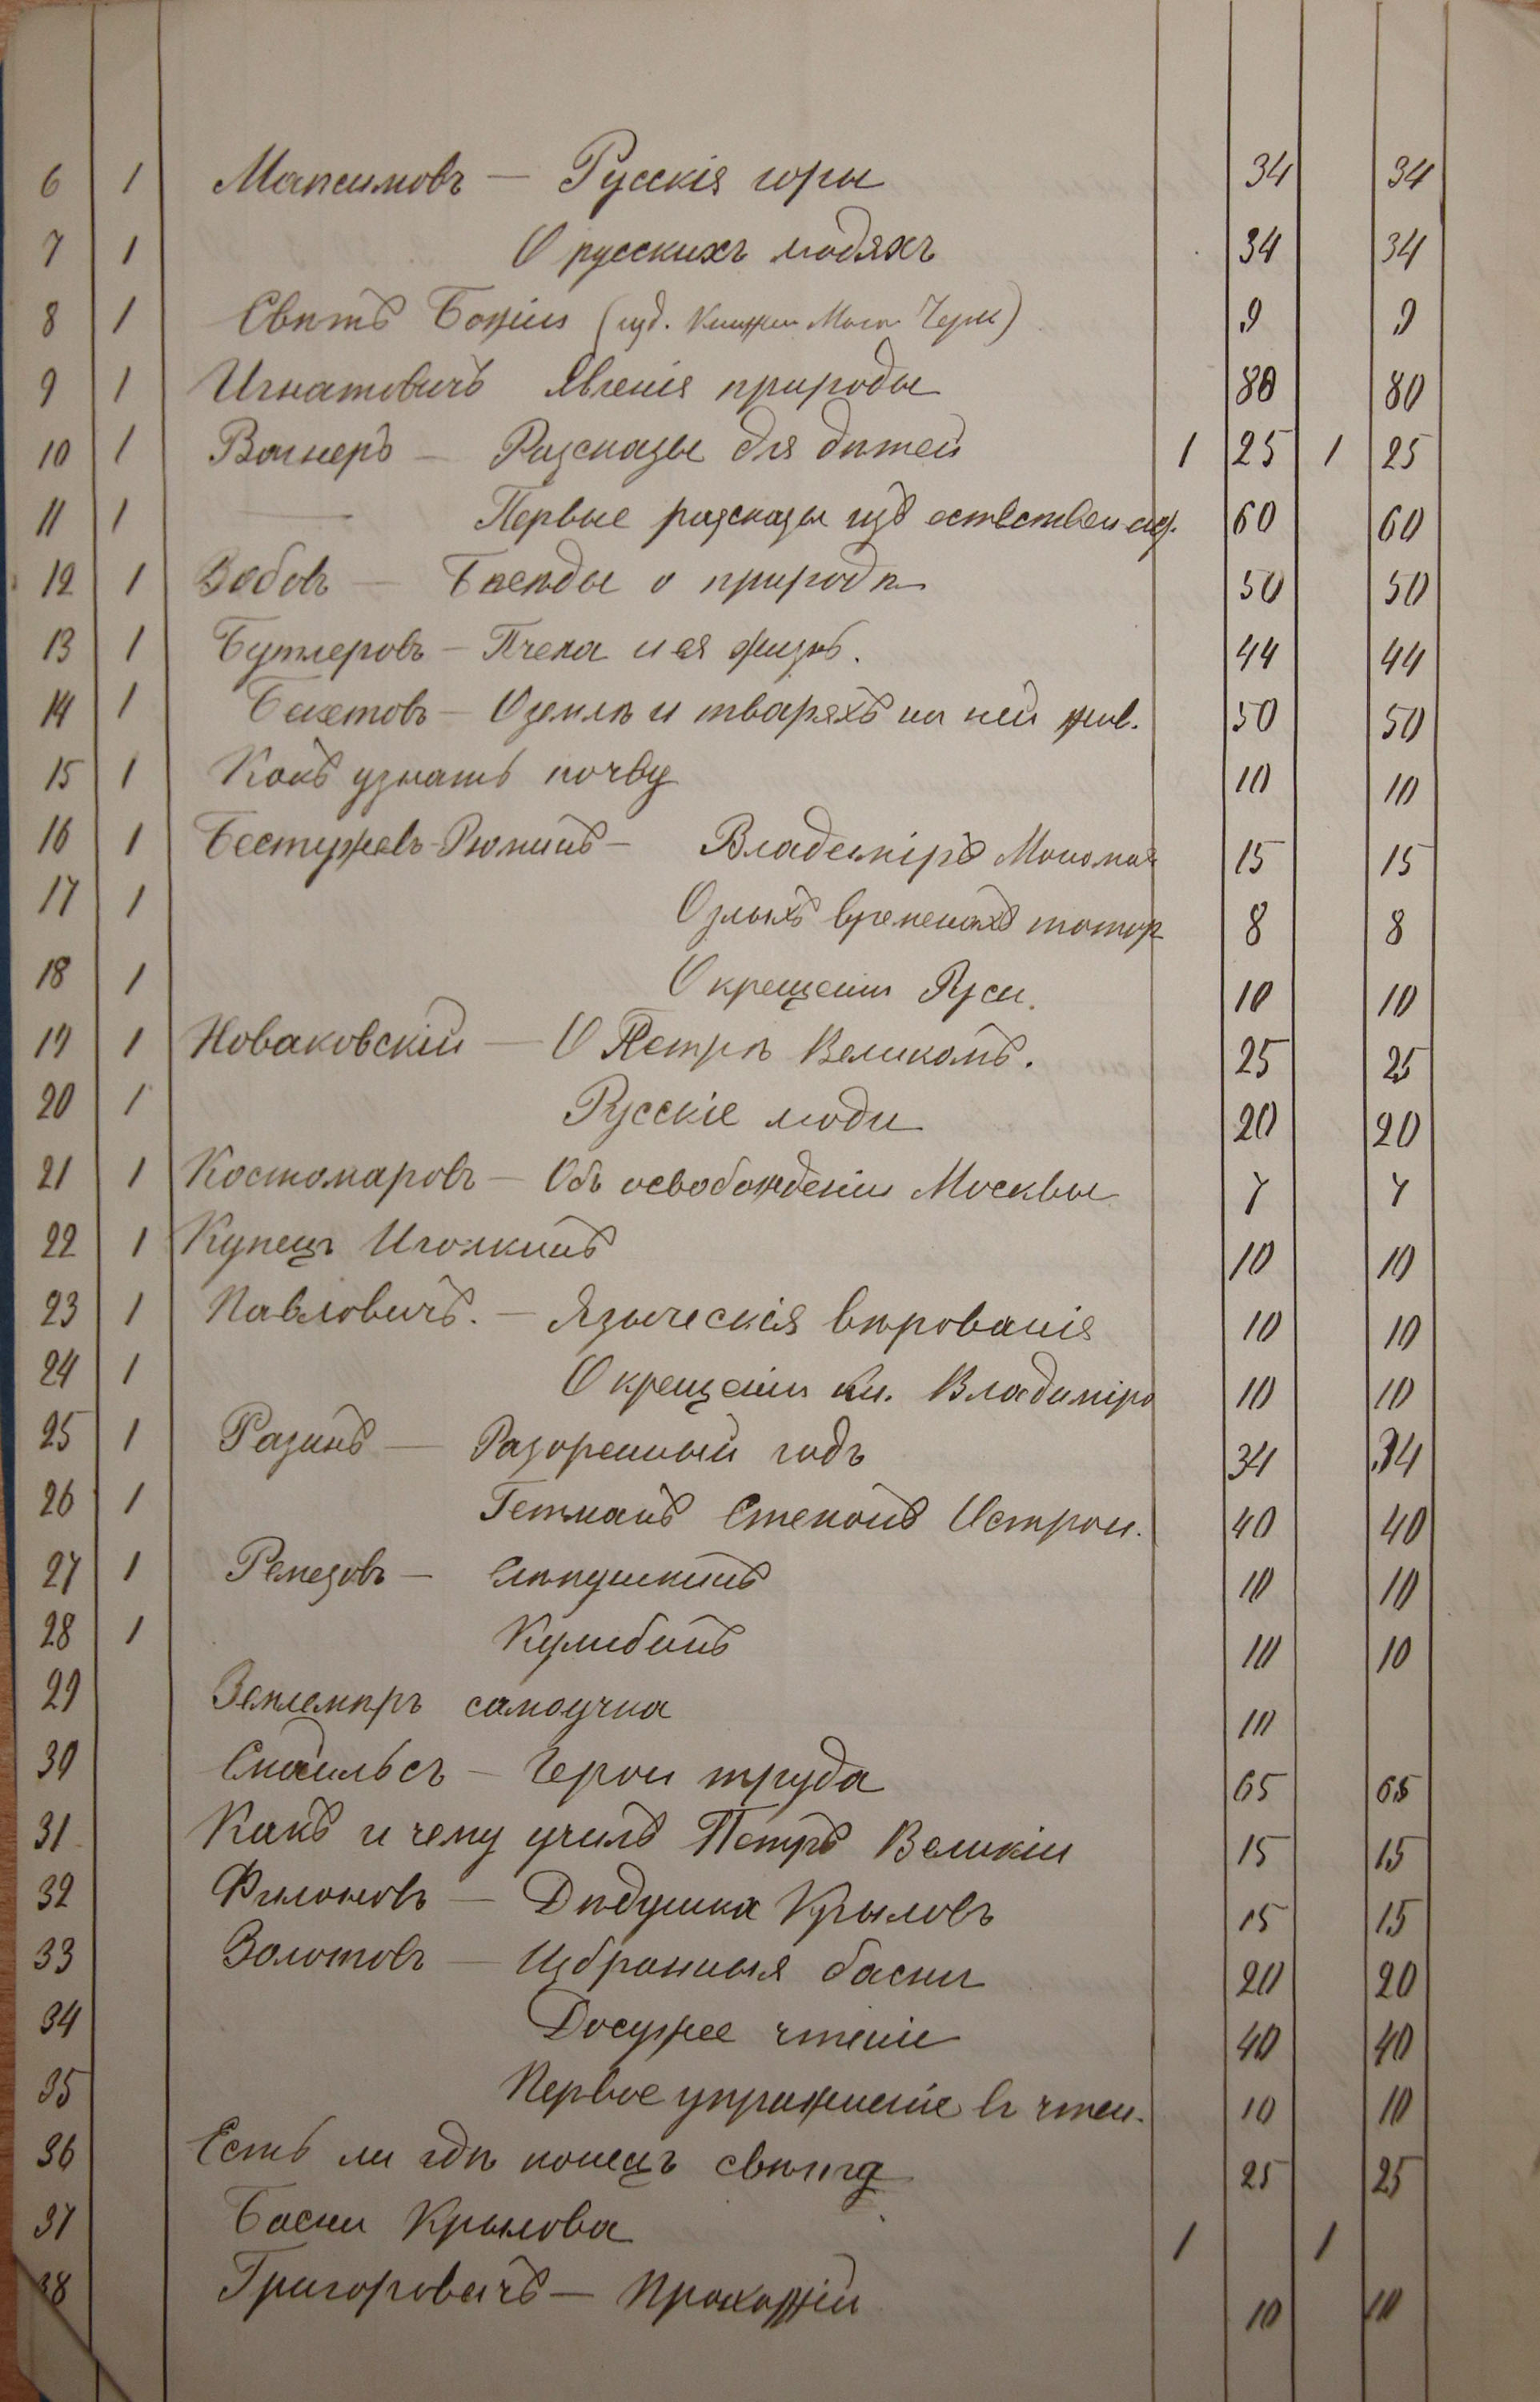 6 1 Максимовъ — Русскія горы 34 34
7 1 О русскихъ людяхъ 34 34
8 1 Свѣтъ Божій (изд. Книжн Маг. Черк) 9 9
9 1 Игнатовичъ Явленія природы 80 80
10 1 Вагнеръ — Разсказы для дѣтей 1 25 1 25
11 1 — Первые разсказы изъ естествен 60 60
12 1 Зобовъ — Бесѣды о природѣ 50 50
13 1 Бутлеровъ — Пчела и ея жизнь. 44 44
14 1 Бекетовъ — О землѣ и тваряхъ на ней жив. 50 50
15 1 Какъ узнать почву 10 10
16 1 Бестужевъ-Рюминъ — Владиміръ Мономах 15 15
17 1 О злыхъ временахъ татар 8 8
18 1 О крещеніи Руси. 10 10
19 1 Новаковскій — О Петрѣ Великомъ. 25 25
20 1 Русскіе люди 20 20
21 1 Костомаровъ — Объ освобожденіи Москвы 7 7
22 1 Купецъ Иголкинъ 10 10
23 1 Павловичъ. — Языческія вѣрованія 10 10
24 1 О крещеніи кн. Владиміра 10 10
25 1 Разинъ — Разоренный годъ 34 34
26 1 Гетманъ Степанъ Остран. 40 40
27 1 Ремезовъ — Слѣпушкинъ 10 10
28 1 Кулибинъ 10 10
29 Землемѣръ самоучка 10
30 Смайльсъ — Герои труда 65 65
31 Какъ и чему училъ Петръ Великій 15 15
32 Филоновъ — Дѣдушка Крыловъ 15 15
33 Золотовъ — Избранныя басни 20 20
34 Досужее чтеніе 40 40
35 Первое упражненіе въ чтен. 10 10
36 Есть ли гдѣ конецъ свѣту 25 25
37 Басни Крылова 1 1
38 Григоровичъ — Прохожій 10 10